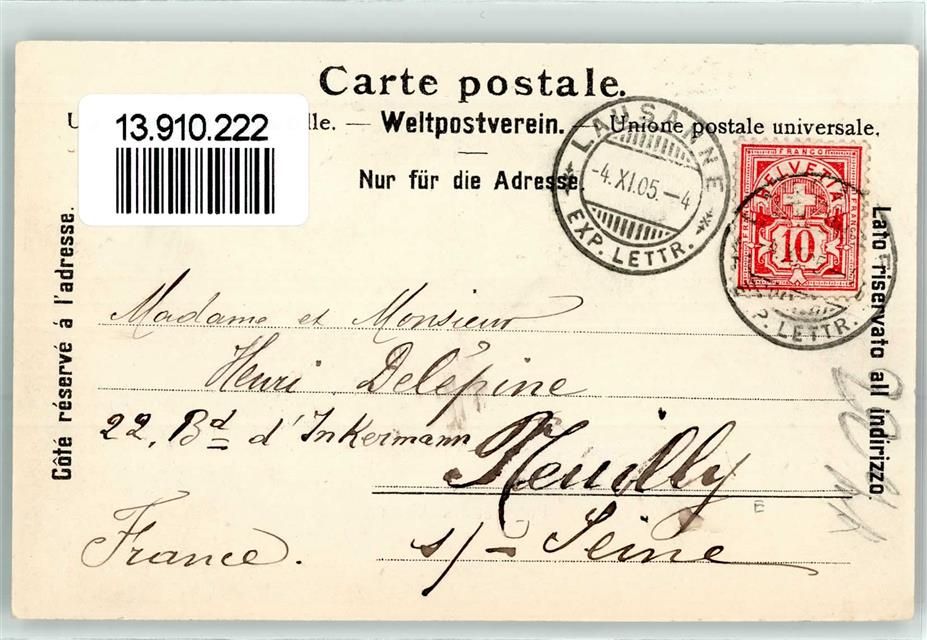 Carte postale.
13.910.222
U lle. — Weltpostverein. — Unione postale universale.
Nur für die Adresse.
LAUSANNE
-4.XI.05.-4
EXP. LETTR.
FRANCO
HELVETIA
10
P. LETTR.
Côté réservé à l'adresse.
Lato riservato all indirizzo.
Madame et Monsieur
Henri Delépine
22, Bd d'Inkermann
Neuilly
s/- Seine
France.
E